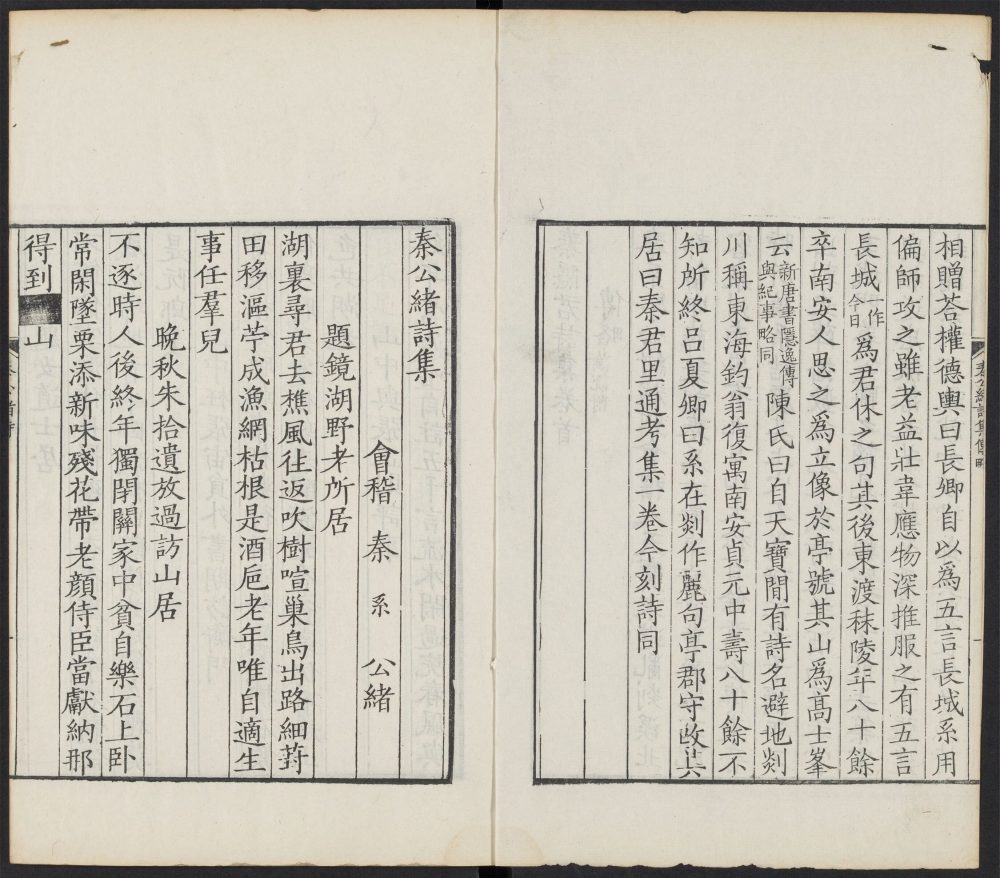 相贈荅權德輿曰長卿自以爲五言長城系用
偏師攻之雖老益壯韋應物深推服之有五言
長城一作今日爲君休之句其後東渡秣陵年八十餘
卒南安人思之爲立像於亭號其山爲髙士峯
云新唐書隱逸傳與紀事略同陳氏曰自天寶間有詩名避地剡
川稱東海釣翁復寓南安貞元中壽八十餘不
知所終呂夏卿曰系在剡作麗句亭郡守改其
居曰秦君里通考集一卷今刻詩同
秦公緒詩集傳略
秦公緒詩集
會稽 秦 系 公緒
題鏡湖野老所居
湖裏尋君去樵風往返吹樹喧巢鳥出路細葑
田移漚苧成漁網枯根是酒巵老年唯自適生
事任羣兒
晚秋朱拾遺放過訪山居
不逐時人後終年獨閉關家中貧自樂石上卧
常閑墜栗添新味殘花帶老顔侍臣當獻納那
得到 山